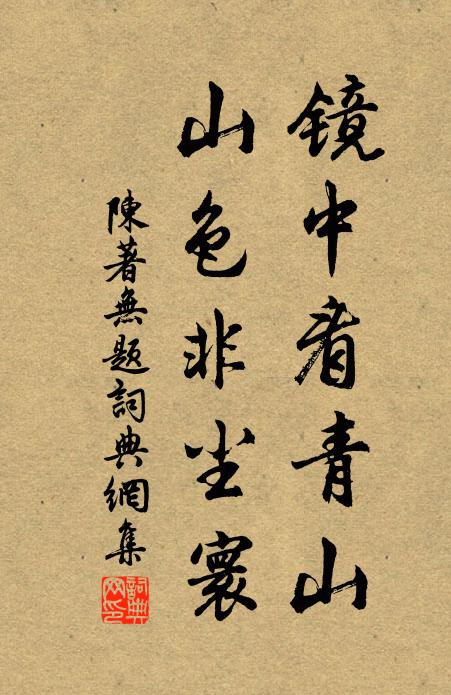 镜中看青山
山色非尘寰
陳著無題詞典網集
詞典网印